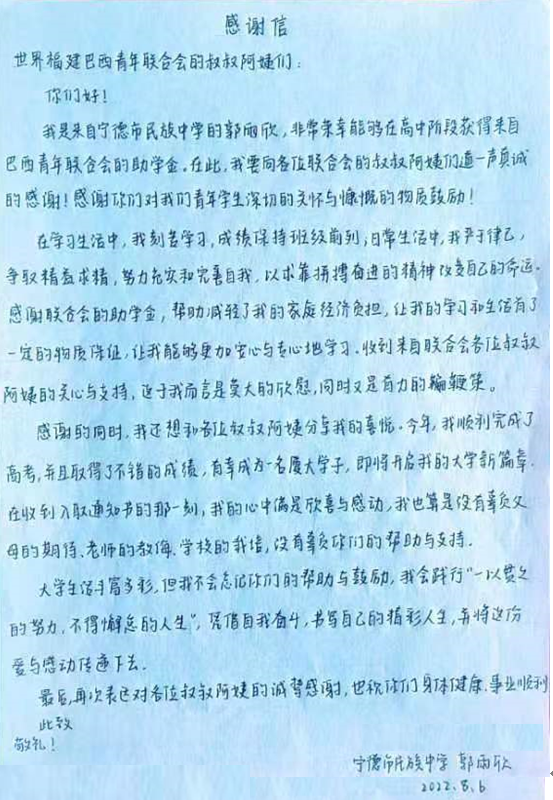 感谢信
世界福建巴西青年联合会的叔叔阿姨们：
你们好！
我是来自宁德市民族中学的郭雨欣，非常荣幸能够在高中阶段获得来自
巴西青年联合会的助学金。在此，我要向各位联合会的叔叔阿姨们道一声真诚
的感谢！感谢你们对我们青年学生深切的关怀与慷慨的物质鼓励！
在学习生活中，我刻苦学习，成绩保持班级前列；日常生活中，我严于律己，
争取精益求精，努力充实和完善自我，以求靠拼搏奋进的精神改变自己的命运。
感谢联合会的助学金，帮助减轻了我的家庭经济负担，让我的学习和生活有了
一定的物质保证，让我能够更加安心与专心地学习。收到来自联合会各位叔叔
阿姨的关心与支持，这于我而言是莫大的欣慰，同时又是有力的鞭策。
感谢的同时，我还想和各位叔叔阿姨分享我的喜悦。今年，我顺利完成了
高考，并且取得了不错的成绩，有幸成为一名厦大学子，即将开启我的大学新篇章。
在收到入取通知书的那一刻，我的心中满是欣喜与感动，我也算是没有辜负父
母的期待、老师的教诲、学校的栽培，没有辜负你们的帮助与支持。
大学生活丰富多彩，但我不会忘记你们的帮助与鼓励，我会践行“一以贯之
的努力，不得懈怠的人生”，凭借自我奋斗，书写自己的精彩人生，并将这份
爱与感动传递下去。
最后，再次表达对各位叔叔阿姨的诚挚感谢，也祝你们身体健康、事业顺利
此致
敬礼！
宁德市民族中学 郭雨欣
2022.8.6